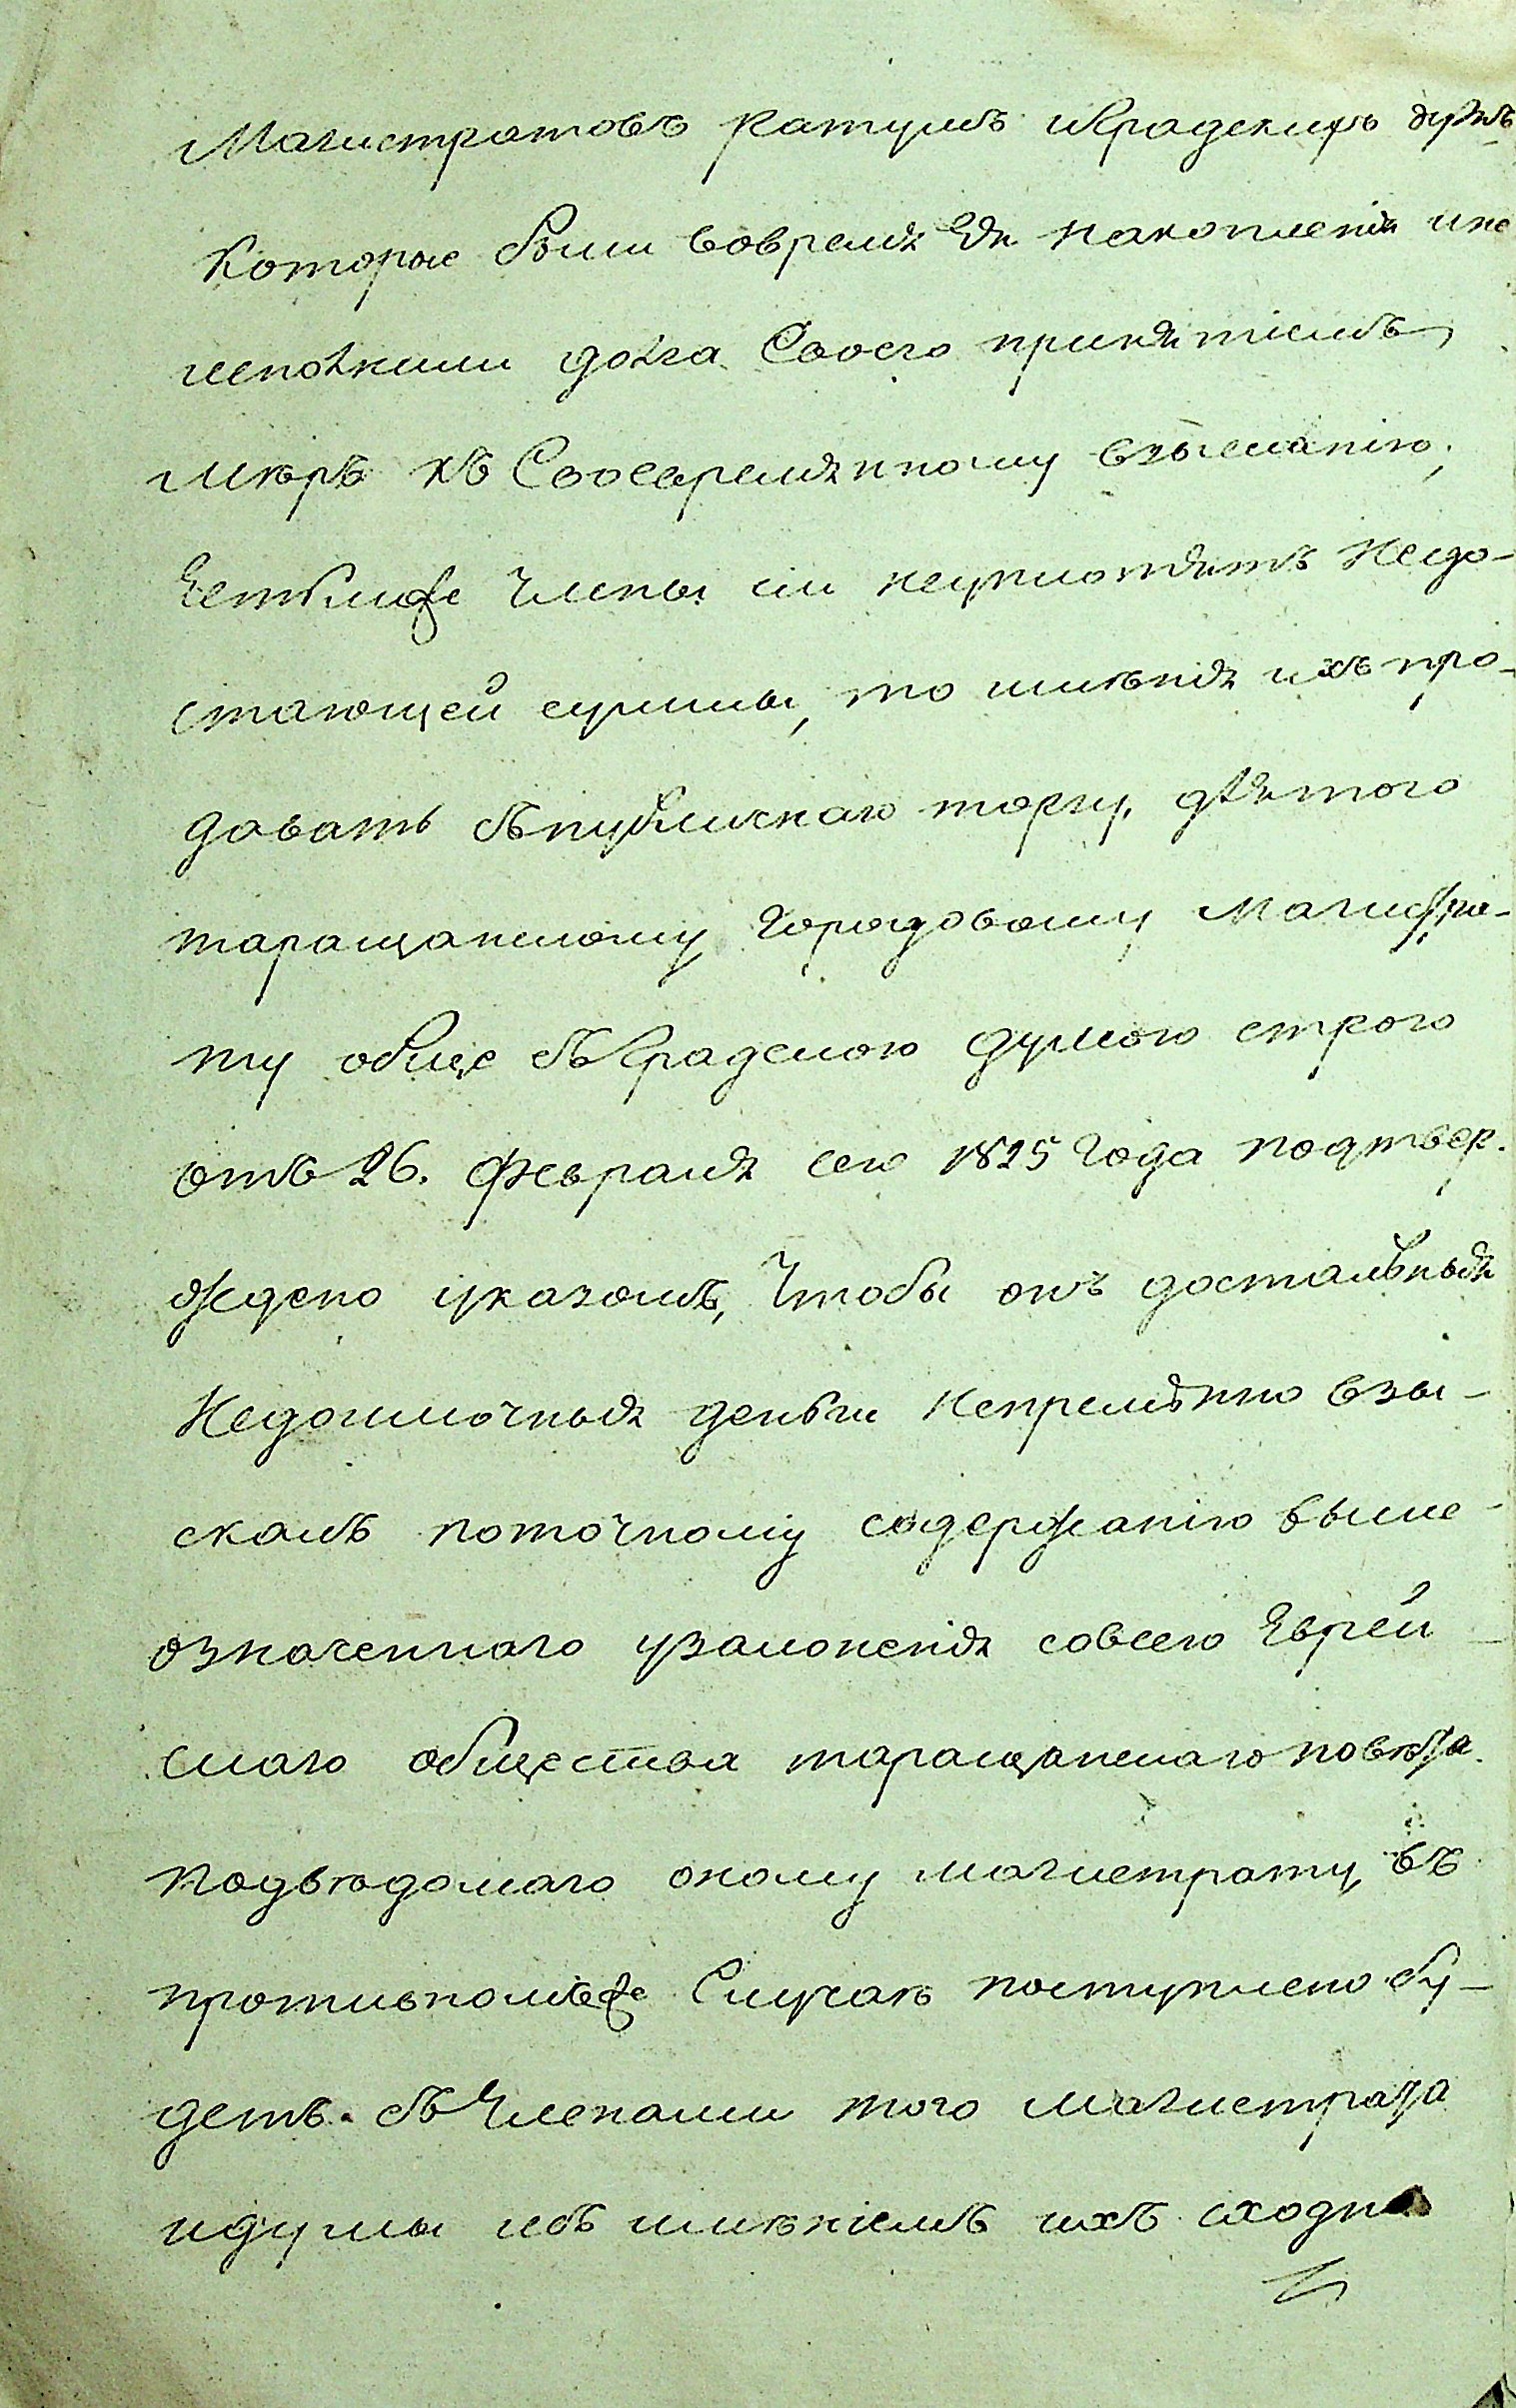 Магистратовъ Ратушъ иГрадскихъ думъ
Которые были вовремя Ея накопления ине
исполнили долга Своего принятіемъ
мѣръ къ Своевременному взысканію,
Естьлиже Члены сіи неуплотятъ Недо-
стающей суммы, то имѣнія ихъ про-
давать съпубличнаго торгу, длятого
таращанскому Городовому Магистра-
ту обще съГрадскою думою строго
отъ 26. февраля сего 1825 Года подтвер-
ждено указомъ, Чтобы онъ достальныя
Недоимочныя деньги Непремѣнно взы-
скалъ поточному содержанію выше-
означеннаго узаконенія совсего Еврей-
скаго общества таращанскаго повѣта
подвѣдомаго оному магистрату, въ
противномъже Случаѣ поступлено бу-
детъ съЧленами того магистрата
идумы исъ имѣніемъ ихъ сходно